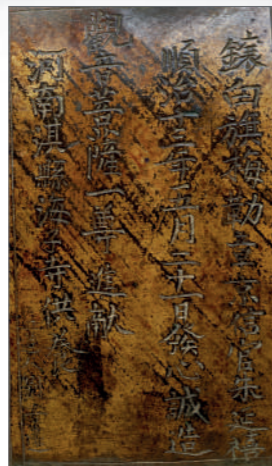 鑲白旗梅勒章京信官朱延禧
順治十三年二月二十一日發心誠造
觀音菩薩一尊進獻
河南淇縣海子寺供養